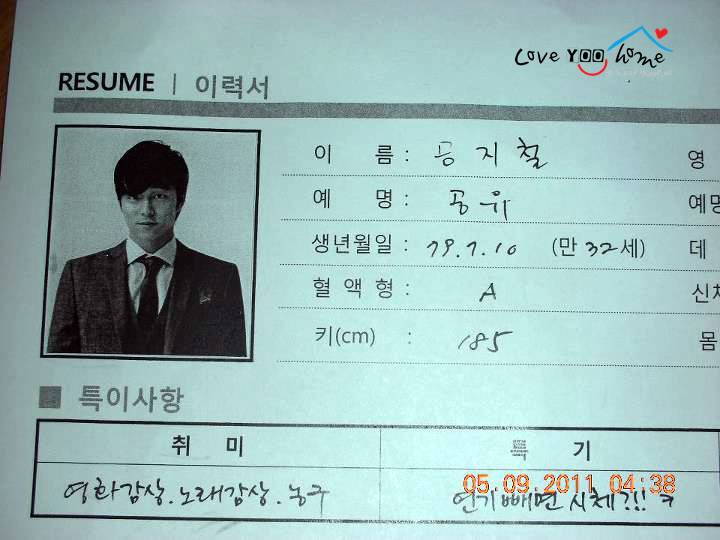 Love YOO home
RESUME | 이력서
이 름 : 공지철 영
예 명 : 공유 예명
생년월일 : 79.7.10 (만 32세) 데
혈 액 형 : A 신체
키(cm) : 185 몸
■ 특이사항
취 미 특 기
영화감상.노래감상.농구 연기빼면 시체?!!! ㅋ
05.09.2011 04:38